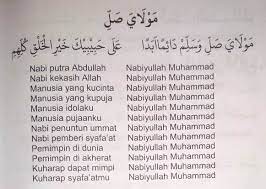 مَوْلَايَ صَلِّ
مَوْلَايَ صَلِّ وَسَلِّمْ دَائِمًا أَبَدًا عَلَى حَبِيْبِكَ خَيْرِ الْخَلْقِ كُلِّهِمِ
Nabi putra Abdullah Nabiyullah Muhammad
Nabi kekasih Allah Nabiyullah Muhammad
Manusia yang kucinta Nabiyullah Muhammad
Manusia yang kupuja Nabiyullah Muhammad
Manusia idolaku Nabiyullah Muhammad
Manusia pujaanku Nabiyullah Muhammad
Nabi penuntun ummat Nabiyullah Muhammad
Nabi pemberi syafa'at Nabiyullah Muhammad
Pemimpin di dunia Nabiyullah Muhammad
Pemimpin di akherat Nabiyullah Muhammad
Kuharap dapat mimpi Nabiyullah Muhammad
Kuharap syafa'atmu Nabiyullah Muhammad